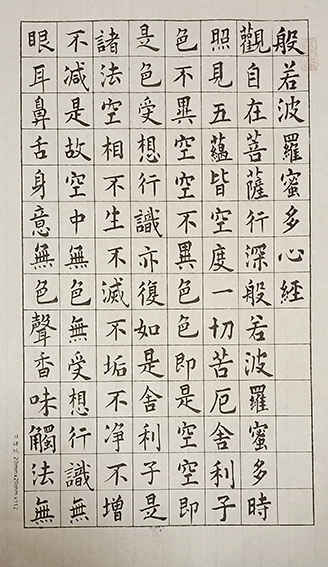 般若波羅蜜多心經
觀自在菩薩行深般若波羅蜜多時
照見五蘊皆空度一切苦厄舍利子
色不異空空不異色色即是空空即
是色受想行識亦復如是舍利子是
諸法空相不生不滅不垢不净不增
不減是故空中無色無受想行識無
眼耳鼻舌身意無色聲香味觸法無